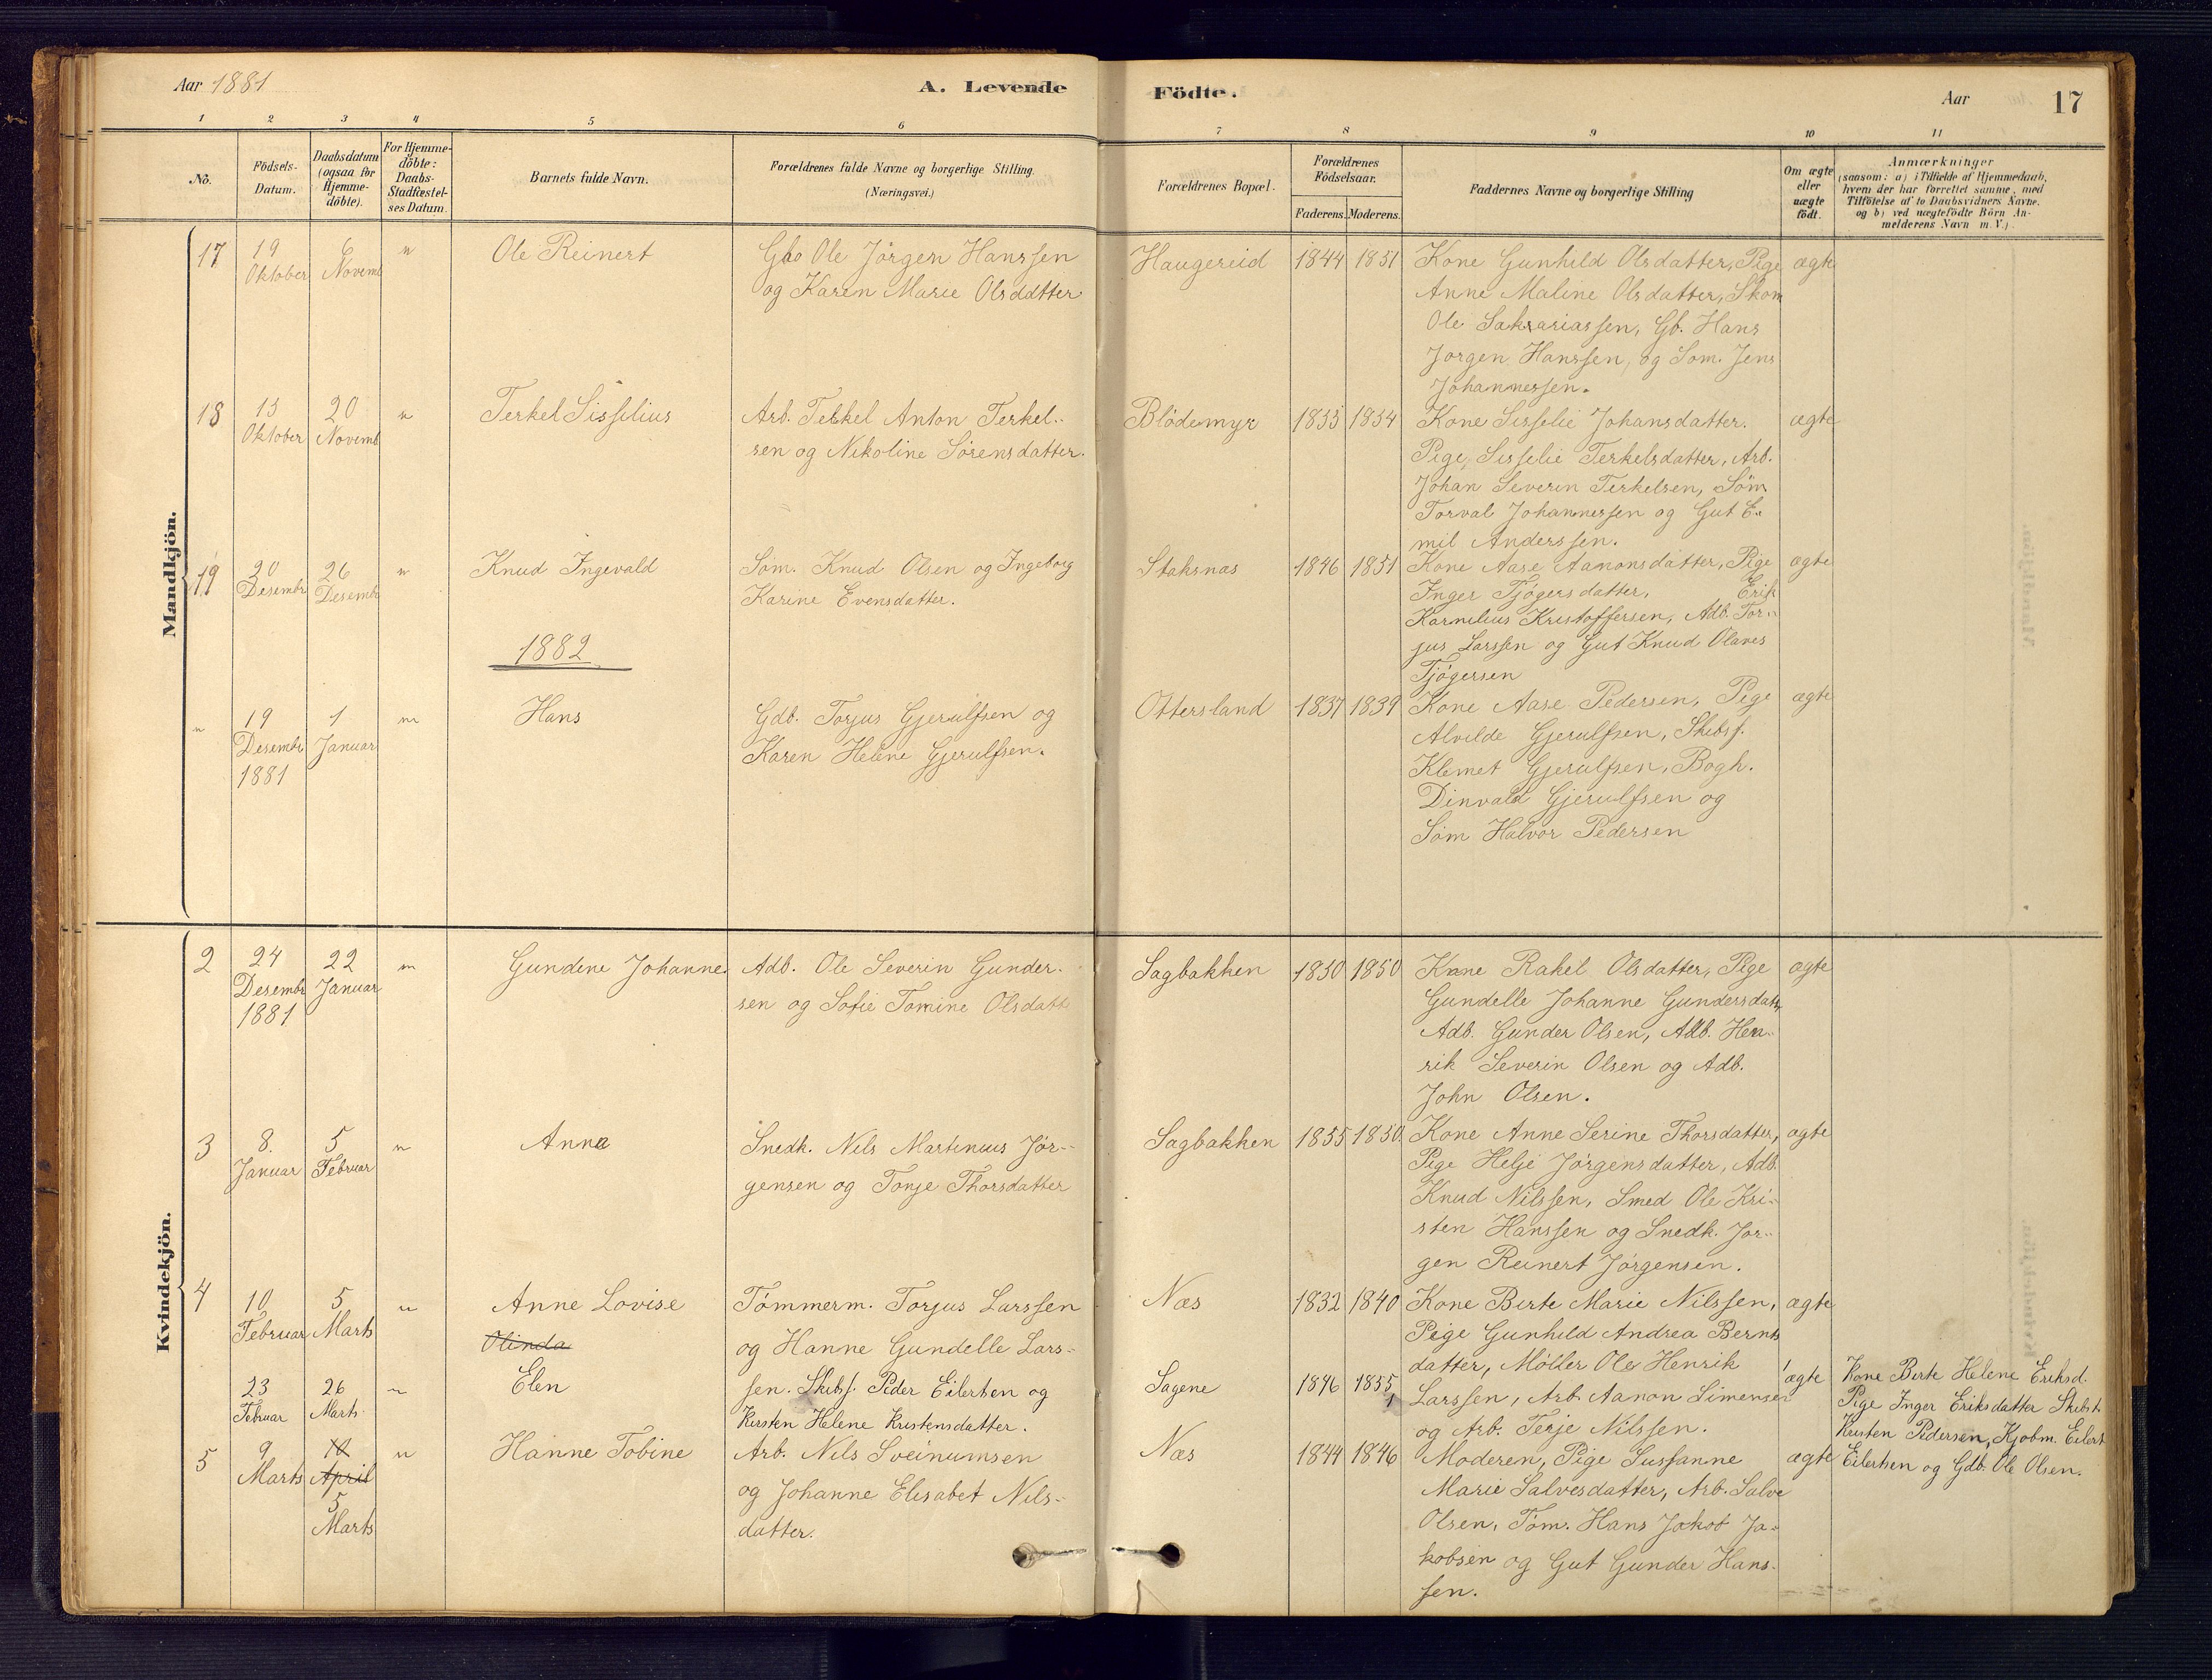 Aar 1881
A. Levende
Födte.
Aar
17
1 2 3 4 5 6 7 8 9 10 11
No.
Födsels-
Datum.
Daabsdatum
(ogsaa for
Hjemme-
döbte).
For Hjemme-
döbte:
Daabs-
Stadfæstel-
ses Datum.
Barnets fulde Navn.
Forældrenes fulde Navne og borgerlige Stilling
(Næringsvei.)
Forældrenes Bopæl.
Forældrenes
Födselsaar.
Faderens. Moderens.
Faddernes Navne og borgerlige Stilling
Om ægte
eller
uægte
födt.
Anmærkninger
(saasom: a) i Tilfælde af Hjemmedaab,
hvem der har forrettet samme, med
Tilföielse af to Daabsvidners Navne.
og b) ved uægtefödte Börn An-
melderens Navn m.V.)
Mandkjön.
17
19
Oktober
6
Novemb
"
Ole Reinert
Gbo Ole Jörgen Hanssen
og Karen Marie Olsdatter
Haugereid
1844 1851
Kone Gunhild Olsdatter, Pige
Anne Maline Olsdatter, Skom
Ole Sakrariassen, Gb. Hans
Jorgen Hanssen, og Som. Jens
Johannessen.
ægte
18
13
Oktober
20
Novemb
"
Terkel Sisselius
Arb. Tekkel Anton Terkel-
sen og Nikoline Sörensdatter.
Blödemyr
1835 1834
Kone Sisselie Johansdatter.
Pige, Sisselie Terkelsdatter, Arb.
Johan Severin Terkelsen, Söm
Torval Johannessen og Gut E-
mil Anderssen.
ægte
19
20
Desembr
26
Desembr
"
Knud Ingevald
Som. Knud Olsen og Ingeborg
Karine Evensdatter.
Staksnas
1846 1851
Kone Aase Aanonsdatter, Pige
Inger Tjögersdatter, Erik
Kornelius Kristoffersen, Adb. Tor-
jus Larssen og Gut Knud Olaves
Tjögersen
ægte
1882
"
19
Desembr
1881
1
Januar
"
Hans
Gdb. Torjus Gjerulfsen og
Karen Helene Gjerulfsen.
Ottersland
1837 1839
Kone Aase Pedersen, Pige
Alvilde Gjerulfsen, Skibsf.
Klemet Gjerulfsen, Bogh.
Dinvald Gjerulfsen og
Söm Halvor Pedersen
ægte
Kvindekjön.
2
24
Desembr
1881
22
Januar
"
Gundine Johanne
Adb. Ole Severin Gunder-
sen og Sofie Tomine Olsdatt
Sagbakken
1830 1850
Kone Rakel Olsdatter, Pige
Gundelle Johanne Gundersdatr,
Adb. Gunder Olsen, Adb. Hen-
rik Severin Olsen og Adb.
John Olsen.
ægte
3
8.
Januar
5
Februar
"
Anna
Snedk. Nils Martinius Jör-
gensen og Tonje Thorsdatter
Sagbakken
1855 1850
Kone Anne Serine Thorsdatter,
Pige Helje Jörgensdatter, Adb.
Knud Nilssen, Smed Ole Kri-
sten Hanssen og Snedk. Jor-
gen Reinert Jörgensen.
ægte
4
10
Februar
5
Marts
"
Anne Lovise
Olinda
Tömmerm. Torjus Larssen
og Hanne Gundelle Lars-
sen.
Næs
1832 1840
Kone Berte Marie Nilssen,
Pige Gunhild Andrea Bernts
datter, Möller Ole Henrik
Larssen, Arb. Aanon Simensen
og Arb. Terje Nilssen.
ægte
23
Februar
26
Marts
"
Elen
Skibsf. Peder Eilertsen og
Kirsten Helene Kristensdatter.
Sagene
1846 1855
ægte
Kone Berte Helene Eriksd.
Pige Inger Eriksdatter Skibst.
Kristen Pedersen, Kjobm. Eilert
Eilertsen og Gdb. Ole Olsen.
5
9
Marts
10
April
5
Marts
"
Hanne Tobine
Arb. Nils Sveinumsen
og Johanne Elisabet Nils-
datter.
Næs
1844 1846
Moderen, Pige Sussanne
Marie Salvesdatter, Arb. Salve
Olsen, Töm. Hans Jakob Ja-
kobsen og Gut Gunder Hans-
sen.
ægte